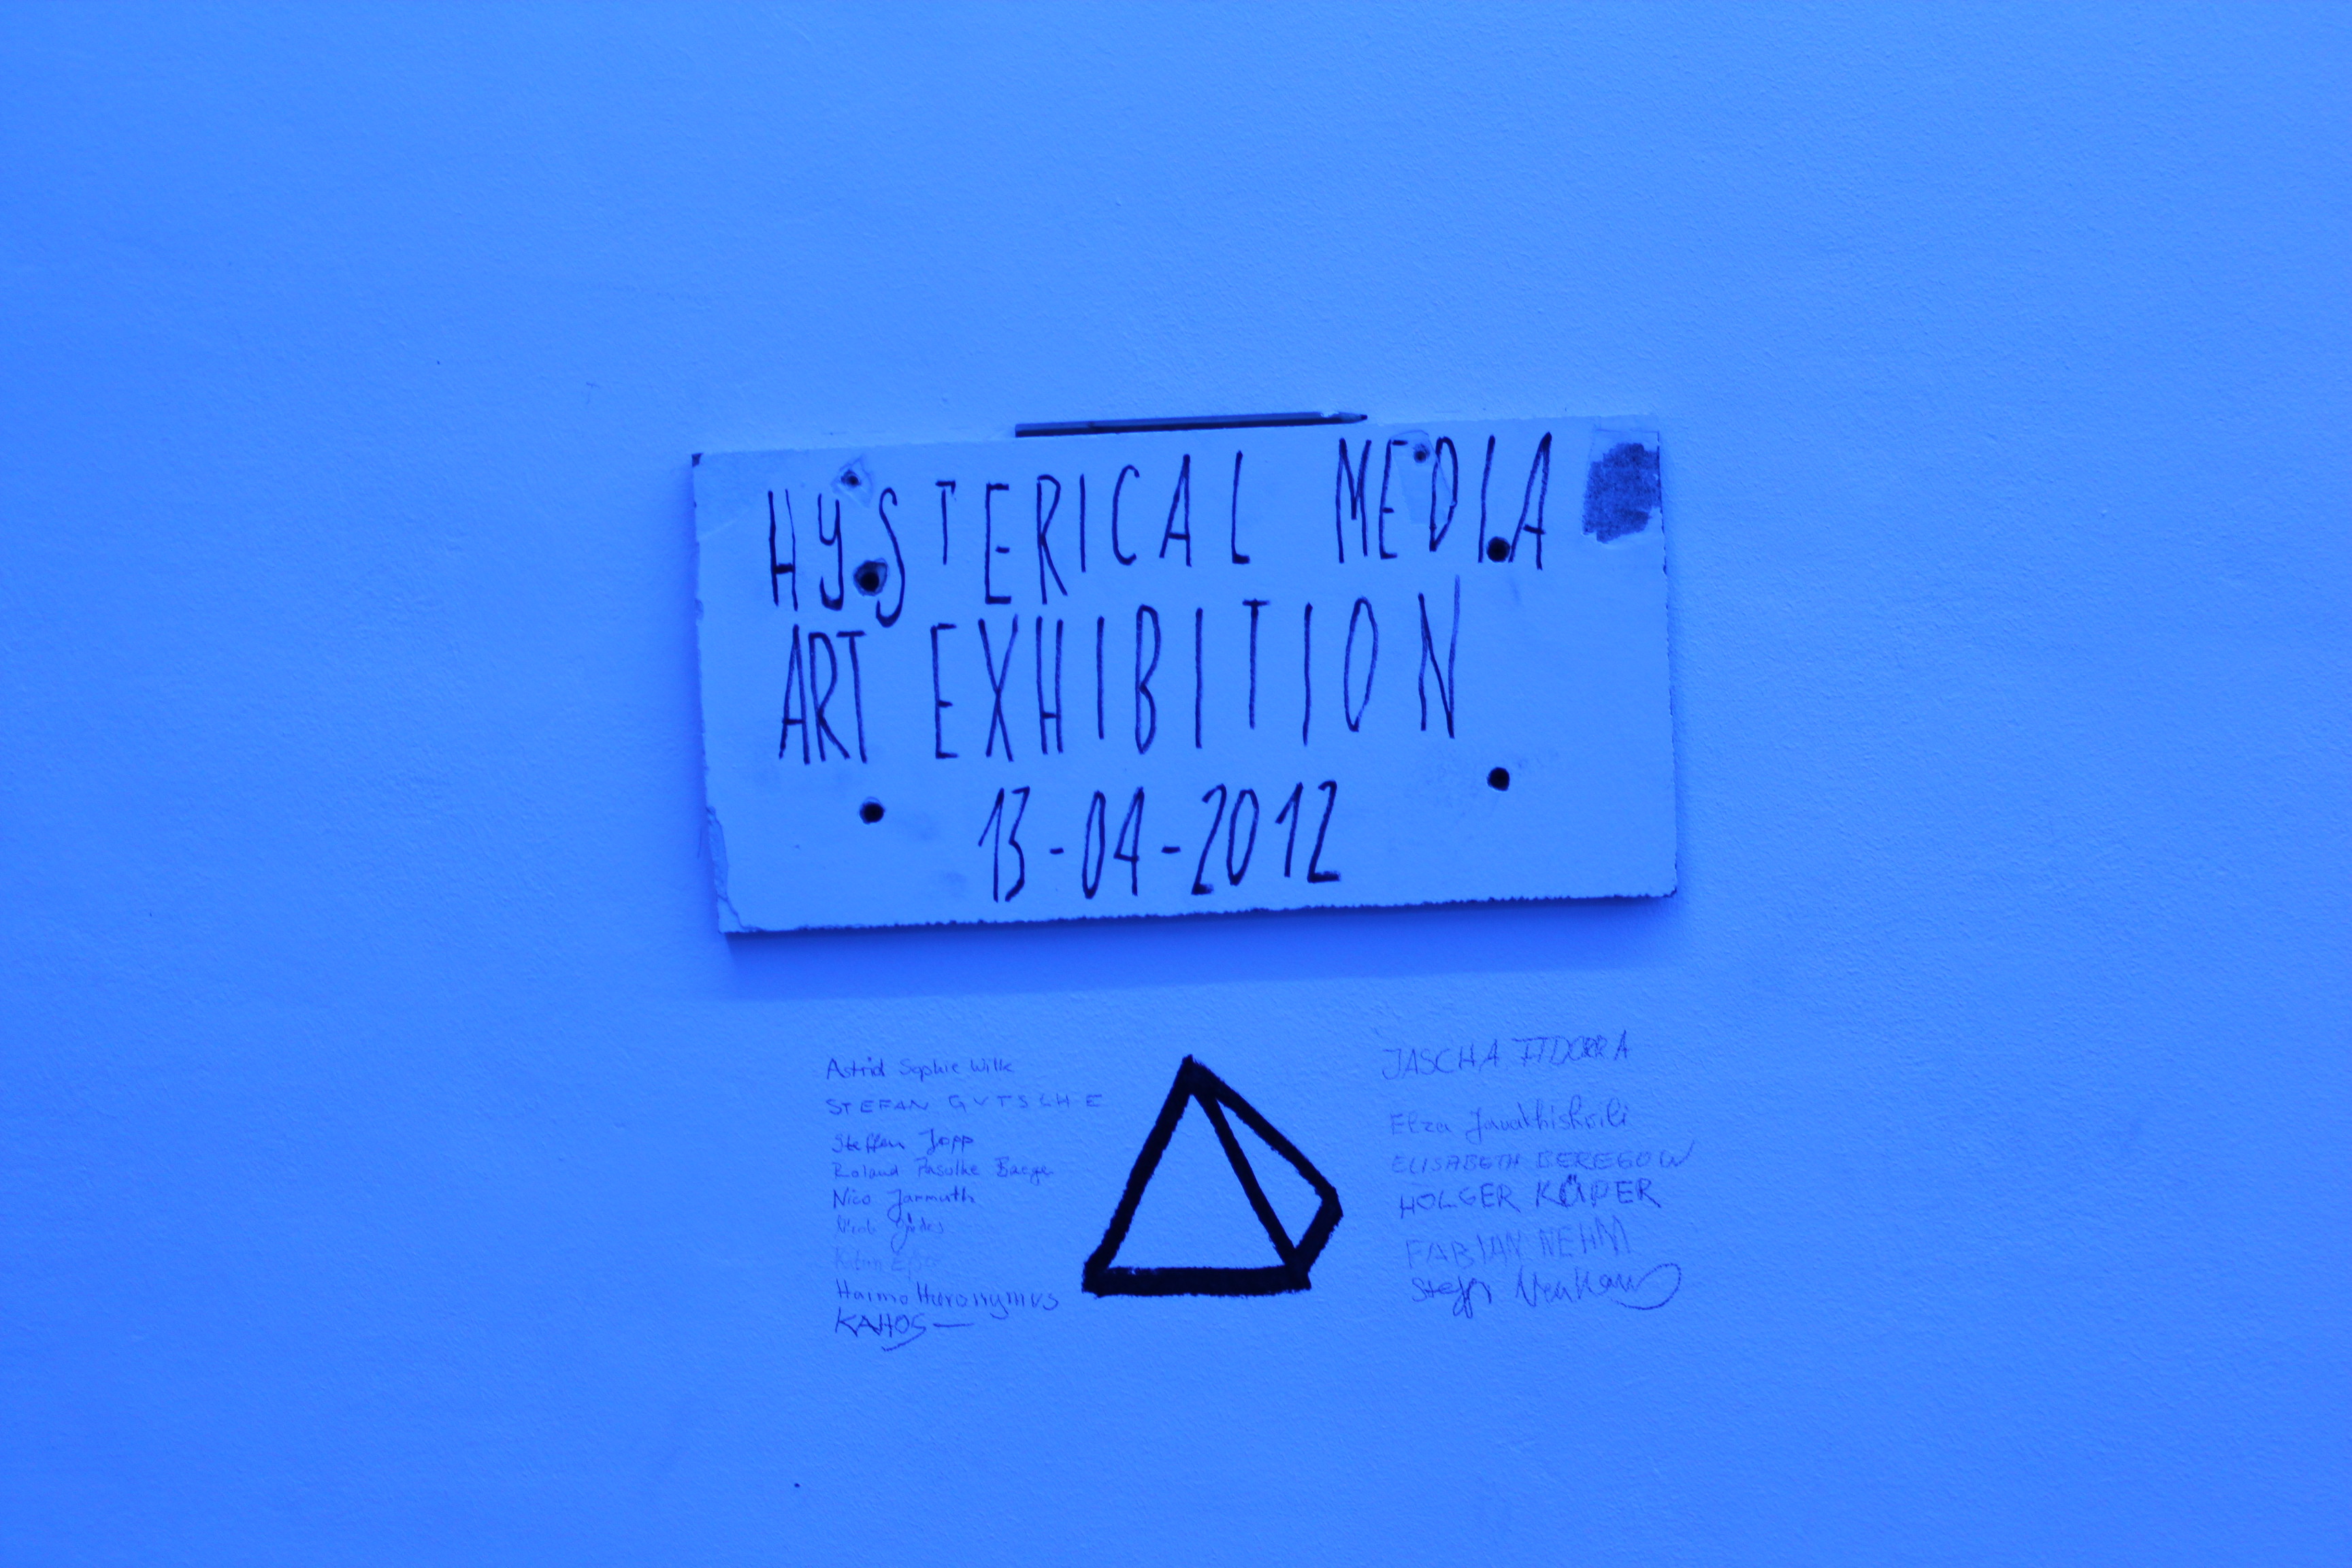 HYSTERICAL MEDIA
ART EXHIBITION
13-04-2012
Astrid Sophie Wilk
STEFAN GUTSCHE
Steffen Jopp
Roland Pasulke Baege
Nico Jarmuth
Haimo Hieronymus
KAHOS
JASCHA
Elza Javakhishvili
ELISABETH BEREGOW
HOLGER KÜPER
FABIAN NEHM
Steffi